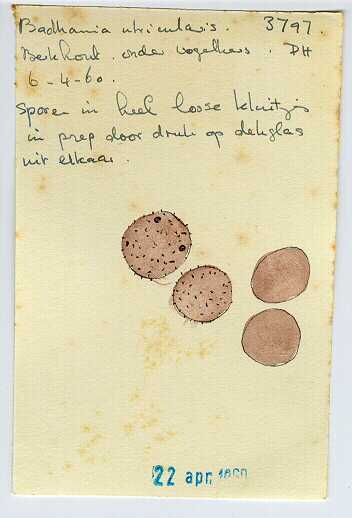 Badhamia utricularis. 3797.
Berkhout. onder vogelkers. DH
6-4-60.
Sporen in heel losse kluitjes
in prep door druk op dekglas
uit elkaar.
22 apr 1960